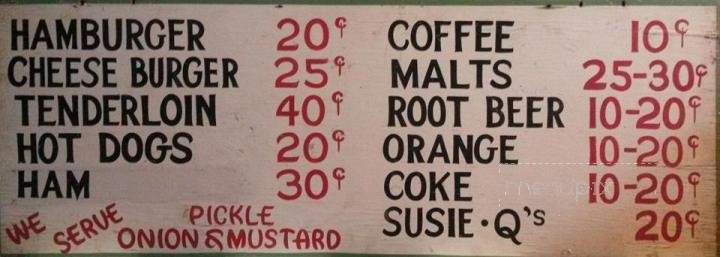 HAMBURGER 20¢
CHEESE BURGER 25¢
TENDERLOIN 40¢
HOT DOGS 20¢
HAM 30¢
WE SERVE PICKLE
ONION & MUSTARD
COFFEE 10¢
MALTS 25-30¢
ROOT BEER 10-20¢
ORANGE 10-20¢
COKE 10-20¢
SUSIE·Q'S 20¢